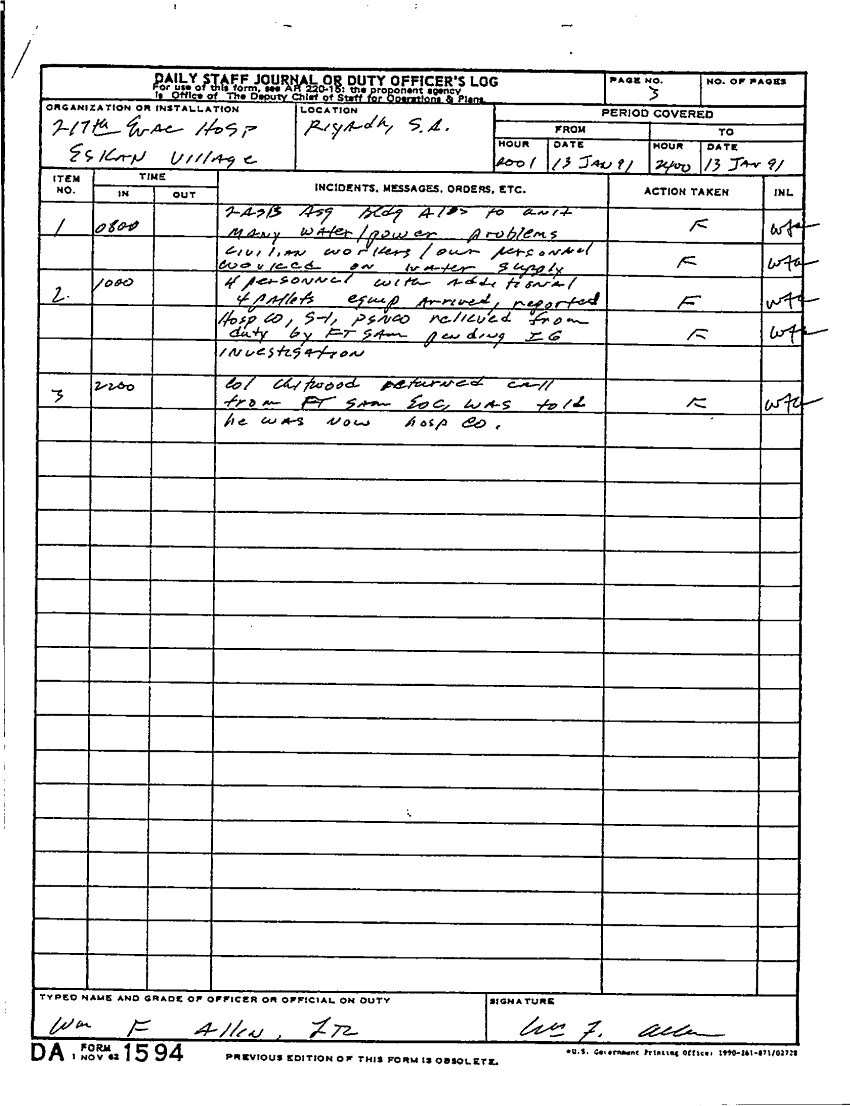 DAILY STAFF JOURNAL OR DUTY OFFICER'S LOG
For use of this form, see AR 220-15; the proponent agency
is Office of The Deputy Chief of Staff for Operations & Plans.
PAGE NO.
3
NO. OF PAGES
ORGANIZATION OR INSTALLATION
217th Evac Hosp
ESKAN Village
LOCATION
Riyadh, S.A.
PERIOD COVERED
FROM
TO
HOUR
DATE
HOUR
DATE
0001
13 JAN 91
2400
13 JAN 91
ITEM NO.
TIME
IN
OUT
INCIDENTS, MESSAGES, ORDERS, ETC.
ACTION TAKEN
INL
1
0800
Asg Bldg to unit
MANY WATER/power problems
F
wfa
CIVILIAN workers/our personnel
worked on water supply
F
wfa
2.
1000
4 personnel with additional
4 pallets equip Arrived, reported
F
wfa
Hosp CO, S-1, PSNCO relieved from
duty by FT SAM pending IG
F
wfa
INVESTIGATION
3
2200
Col Chitwood returned call
from FT SAM EOC, WAS told
F
wfa
he WAS NOW hosp CO.
TYPED NAME AND GRADE OF OFFICER OR OFFICIAL ON DUTY
Wm F Allen,
SIGNATURE
Wm F. Allen
DA FORM 1 NOV 62 1594
PREVIOUS EDITION OF THIS FORM IS OBSOLETE.
*U.S. Government Printing Office: 1990-261-871/02728